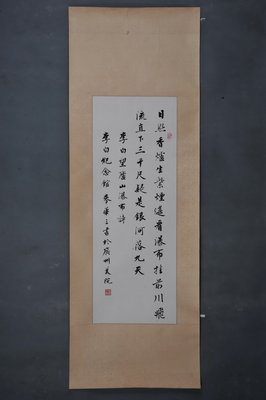 日照香爐生紫煙遥看瀑布挂前川飛
流直下三千尺疑是銀河落九天
李白望廬山瀑布詩
李白紀念館 麥華三書於廣州美院